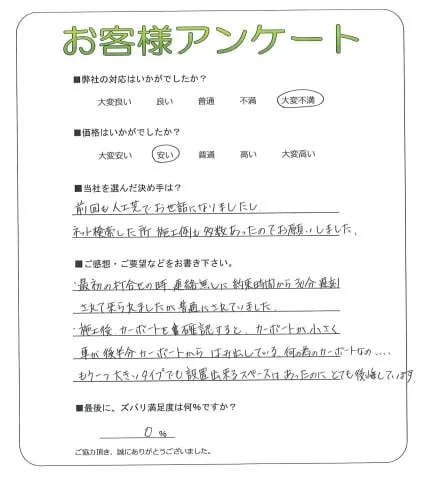 お客様アンケート
■弊社の対応はいかがでしたか?
大変良い 良い 普通 不満 大変不満
■価格はいかがでしたか?
大変安い 安い 普通 高い 大変高い
■当社を選んだ決め手は?
前回も人工芝でお世話になりましたし
ネット検索した所 施工例も多数あったのでお願いしました。
■ご感想・ご要望などをお書き下さい。
・最初の打合せの時、連絡無しに約束時間から30分遅刻
されて来られましたが普通にされていました。
・施工後 カーポートを確認すると、カーポートが小さく
車が後半分カーポートからはみ出している 何の為のカーポートなの....
もう一つ大きいタイプでも設置出来るスペースはあったのに とても後悔しています
■最後に、ズバリ満足度は何%ですか?
0 %
ご協力頂き、誠にありがとうございました。